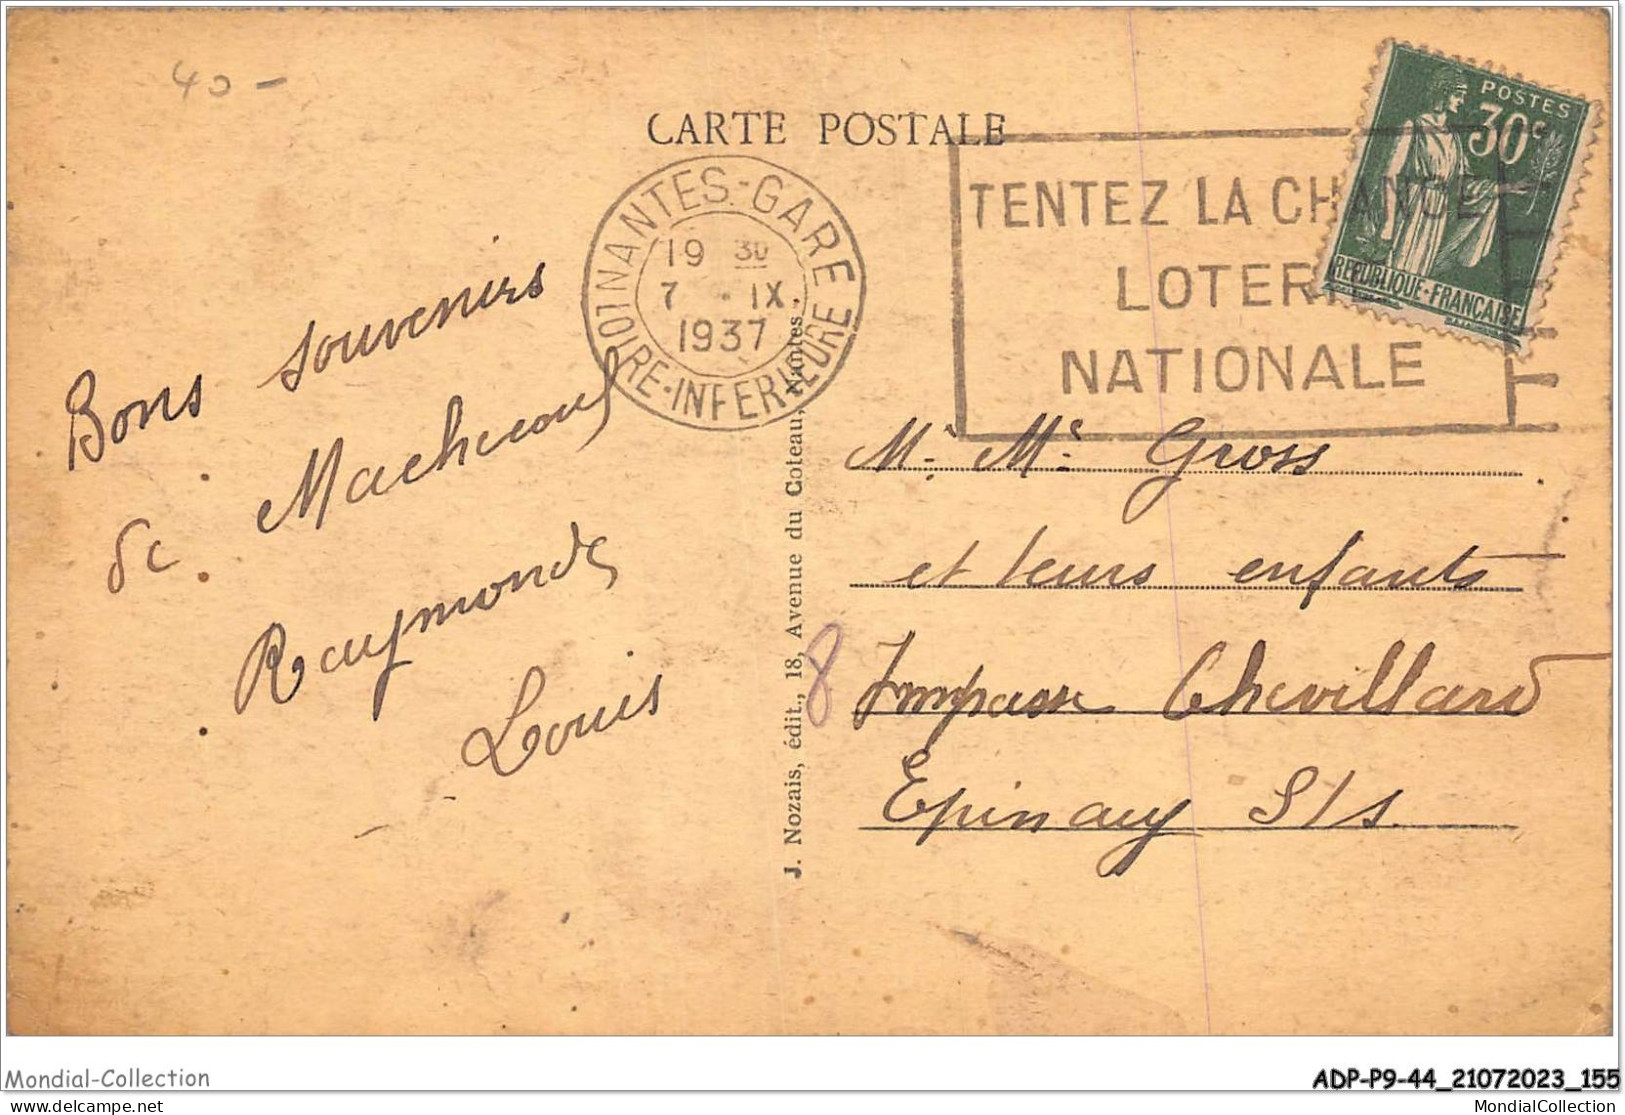 40 -
CARTE POSTALE
POSTES
30c
REPUBLIQUE-FRANÇAISE
NANTES-GARE
19 30
7 . IX
1937
LOIRE-INFERIEURE
TENTEZ LA CHANCE
LOTERIE
NATIONALE
Bons souvenirs
de Machecoul
Raymonde
Louis
J. Nozais, édit., 18, Avenue du Coteau, Nantes.
Mr. Me Gross
et leurs enfants
8 Impasse Chevillard
Epinay S/s.
Mondial-Collection
ADP-P9-44_21072023_155
delcampe.net
MondialCollection